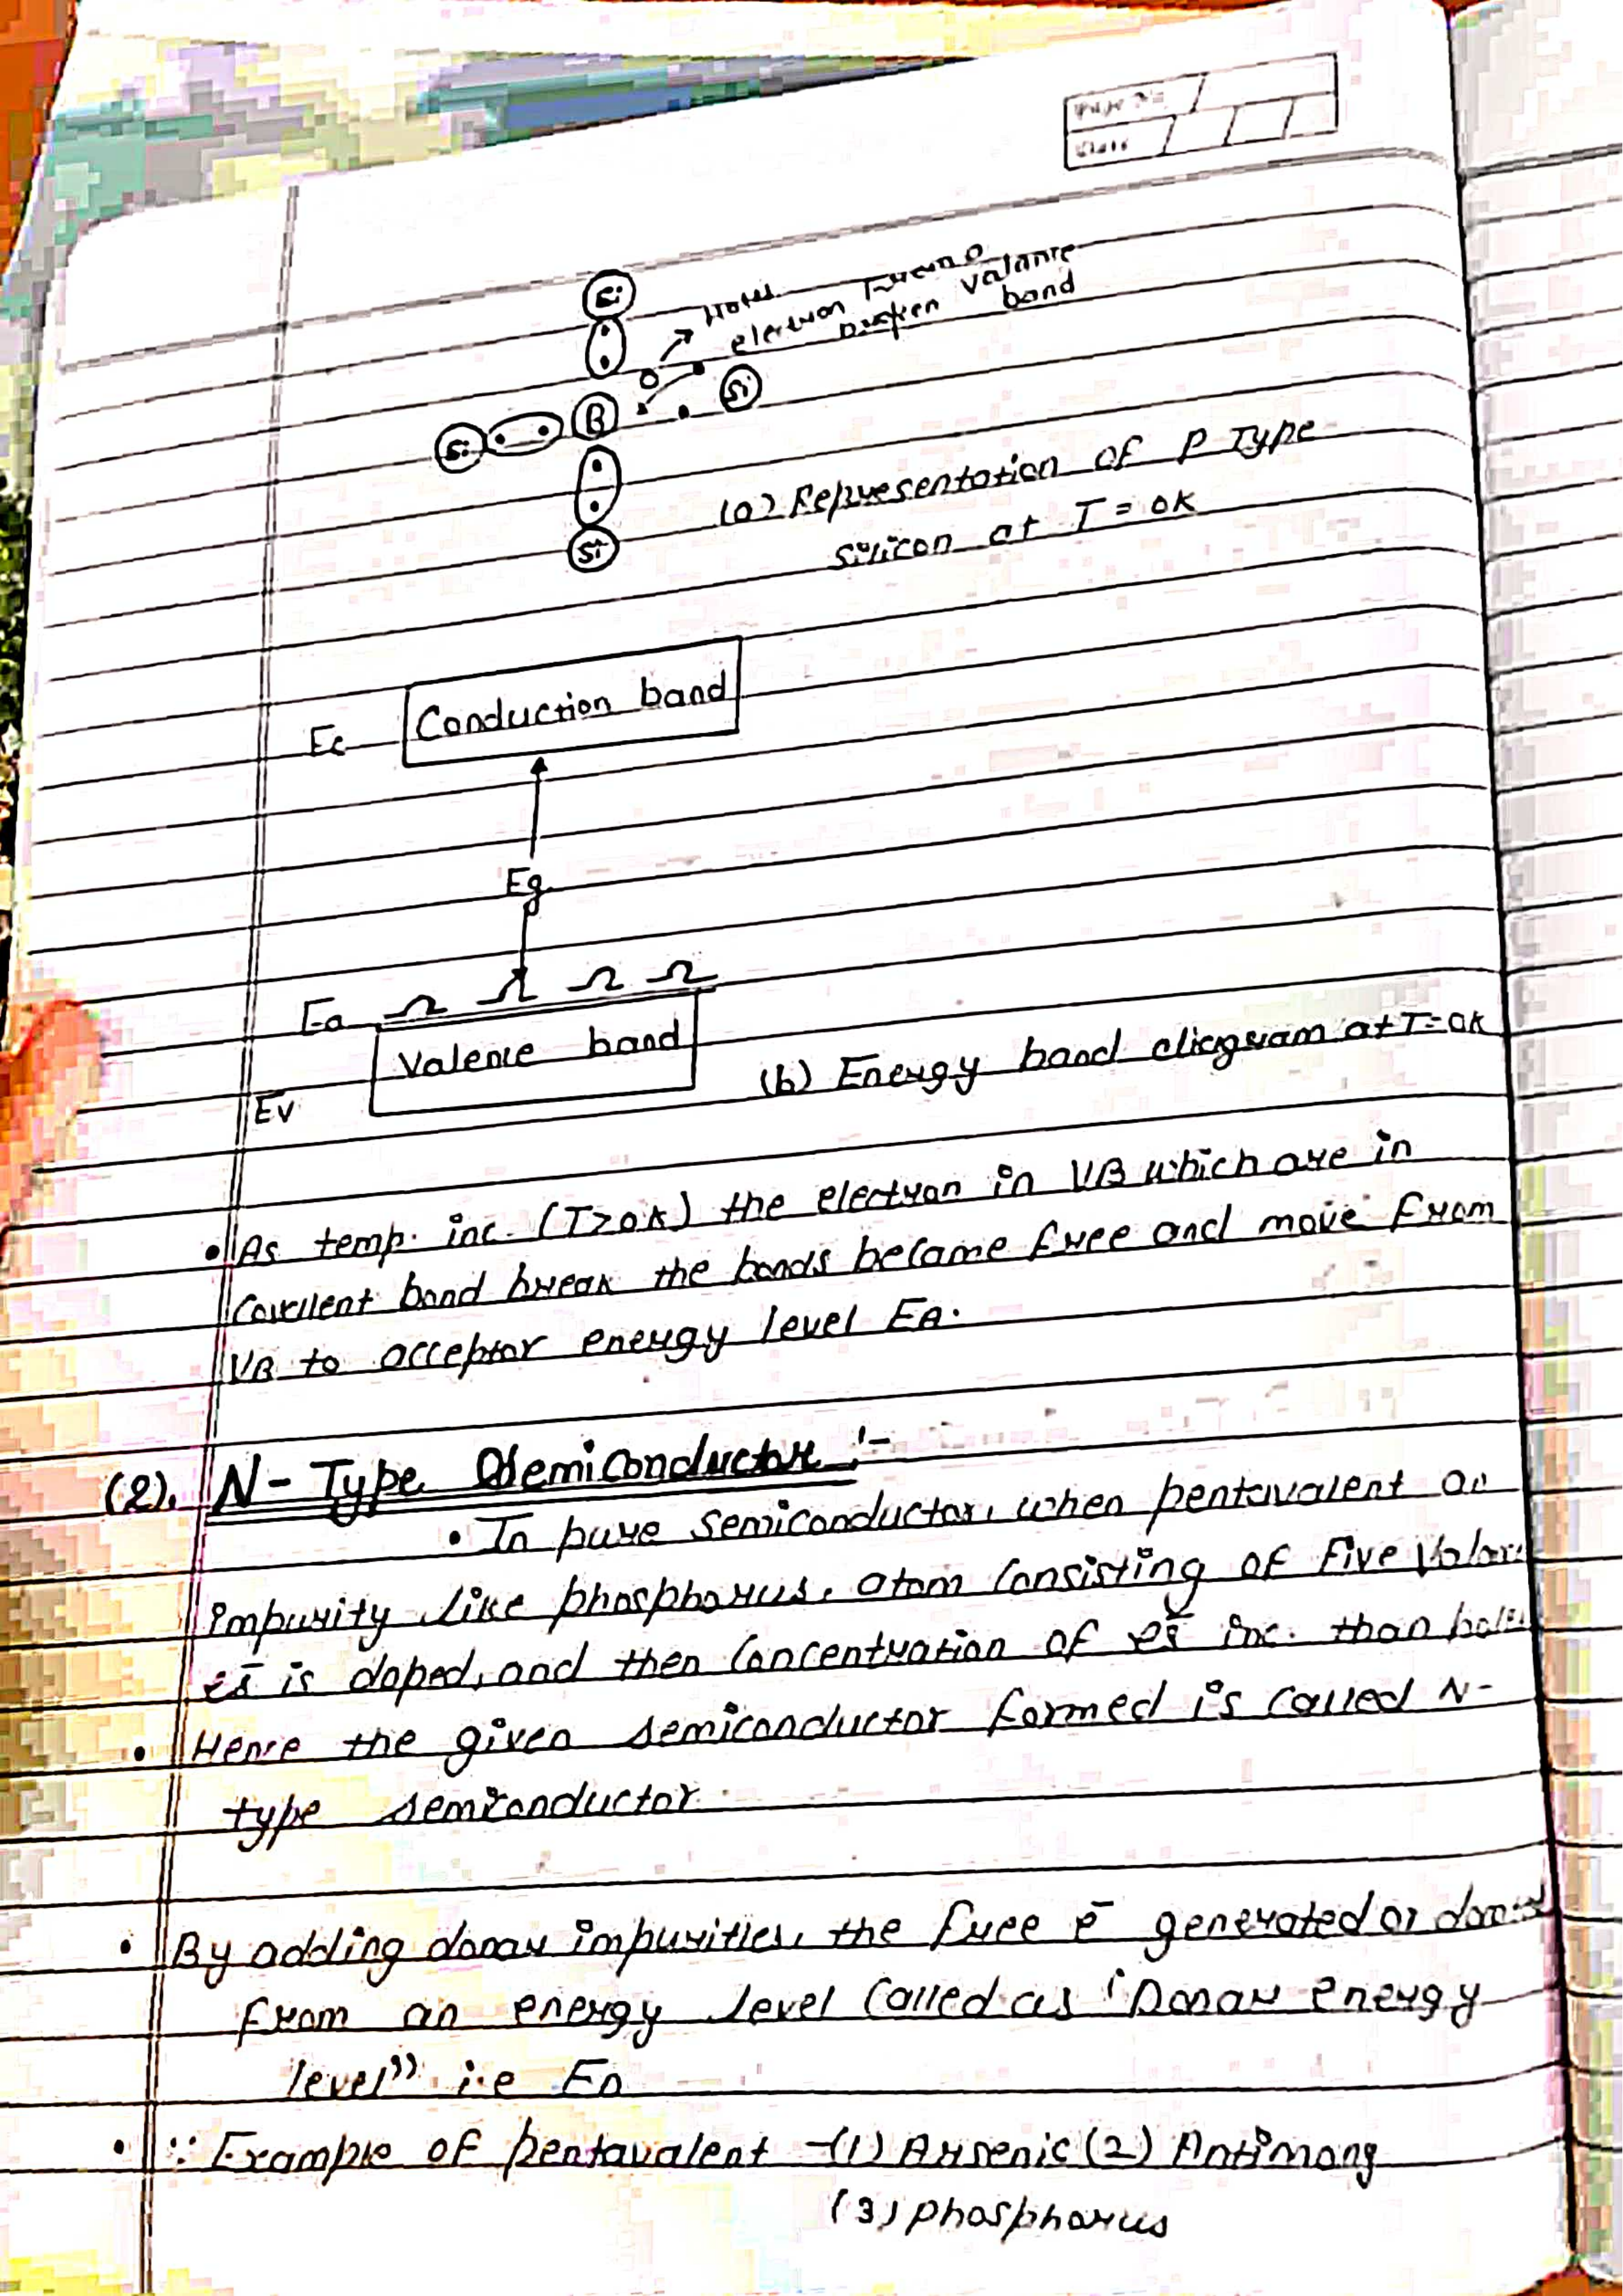 Page No.
Date
Si
Holes
electron from a
broken valance
band
Si
B
Si
Si
(a) Representation of P Type
silicon at T = 0K
Conduction band
Ec
Eg
Ea
Valence band
(b) Energy band diagram at T=0K
Ev
• As temp. inc. (T>0K) the electron in VB which are in
covellent bond break the bonds became free and move from
VB to acceptor energy level EA.
(2). N-Type Semiconductor :-
• In pure semiconductor, when pentavalent
impurity like phosphorus, atom consisting of five
is doped, and then concentration of inc. than
• Hence the given semiconductor formed is called N-
type semiconductor.
• By adding donar impurities, the free e- generated or
from an energy level called as "Donar energy
level" i.e ED
• ∵ Example of pentavalent -(1) Arsenic (2) Antimony
(3) phosphorus